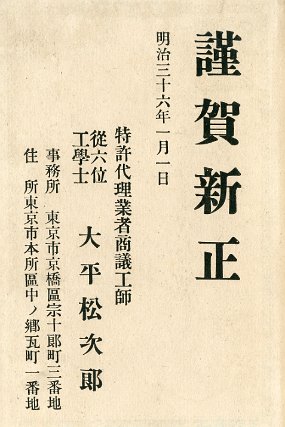 謹賀新正
明治三十六年一月一日
特許代理業者商議工師
從六位
工學士
大平松次郎
事務所 東京市京橋區宗十郎町三番地
住所 東京市本所區中ノ郷瓦町一番地